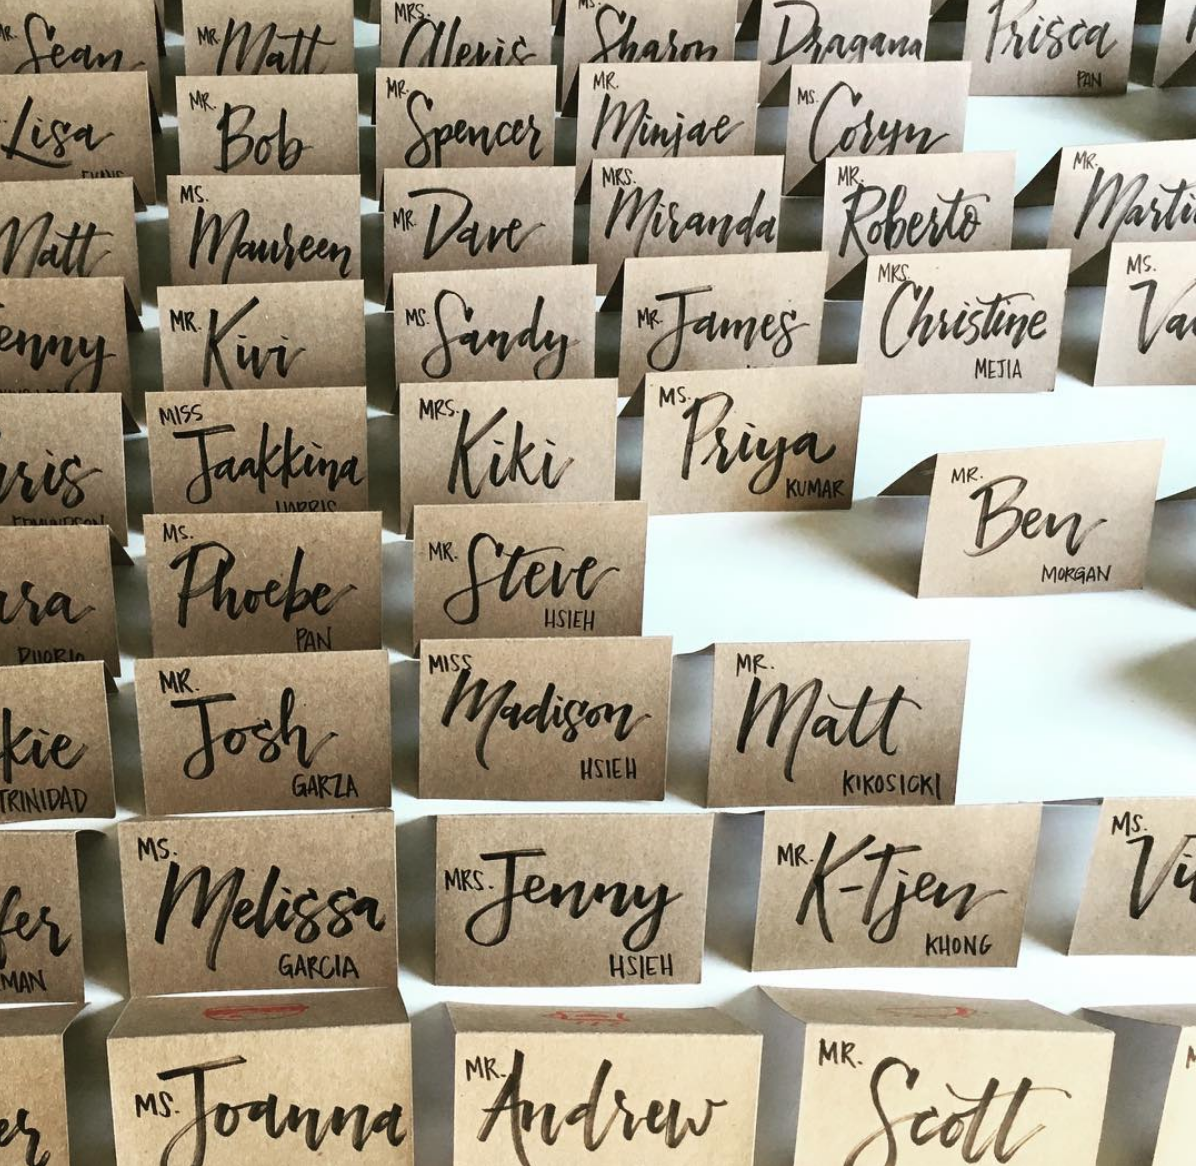 MR.
Sean
MR.
Matt
MRS.
Alexis
MS.
Sharon
Dragana
Prisca
PAN
Lisa
EVANS
MR.
Bob
MR.
Spencer
MR.
Minjae
MS.
Coryn
Matt
MS.
Maureen
MR.
Dave
MRS.
Miranda
MR.
Roberto
MR.
Marti
enny
MR.
Kivi
MS.
Sandy
MR.
James
MRS.
Christine
MEJIA
MS.
Va
hris
EDMUNDSON
MISS
Jaakkina
HARRIS
MRS.
Kiki
MS.
Priya
KUMAR
MR.
Ben
MORGAN
ara
MS.
Phoebe
PAN
MR.
Steve
HSIEH
kie
TRINIDAD
MR.
Josh
GARZA
MISS
Madison
HSIEH
MR.
Matt
KIKOSICKI
fer
MAN
MS.
Melissa
GARCIA
MRS.
Jenny
HSIEH
MR.
K-Tjen
KHONG
MS.
Vi
er
MS.
Joanna
MR.
Andrew
MR.
Scott